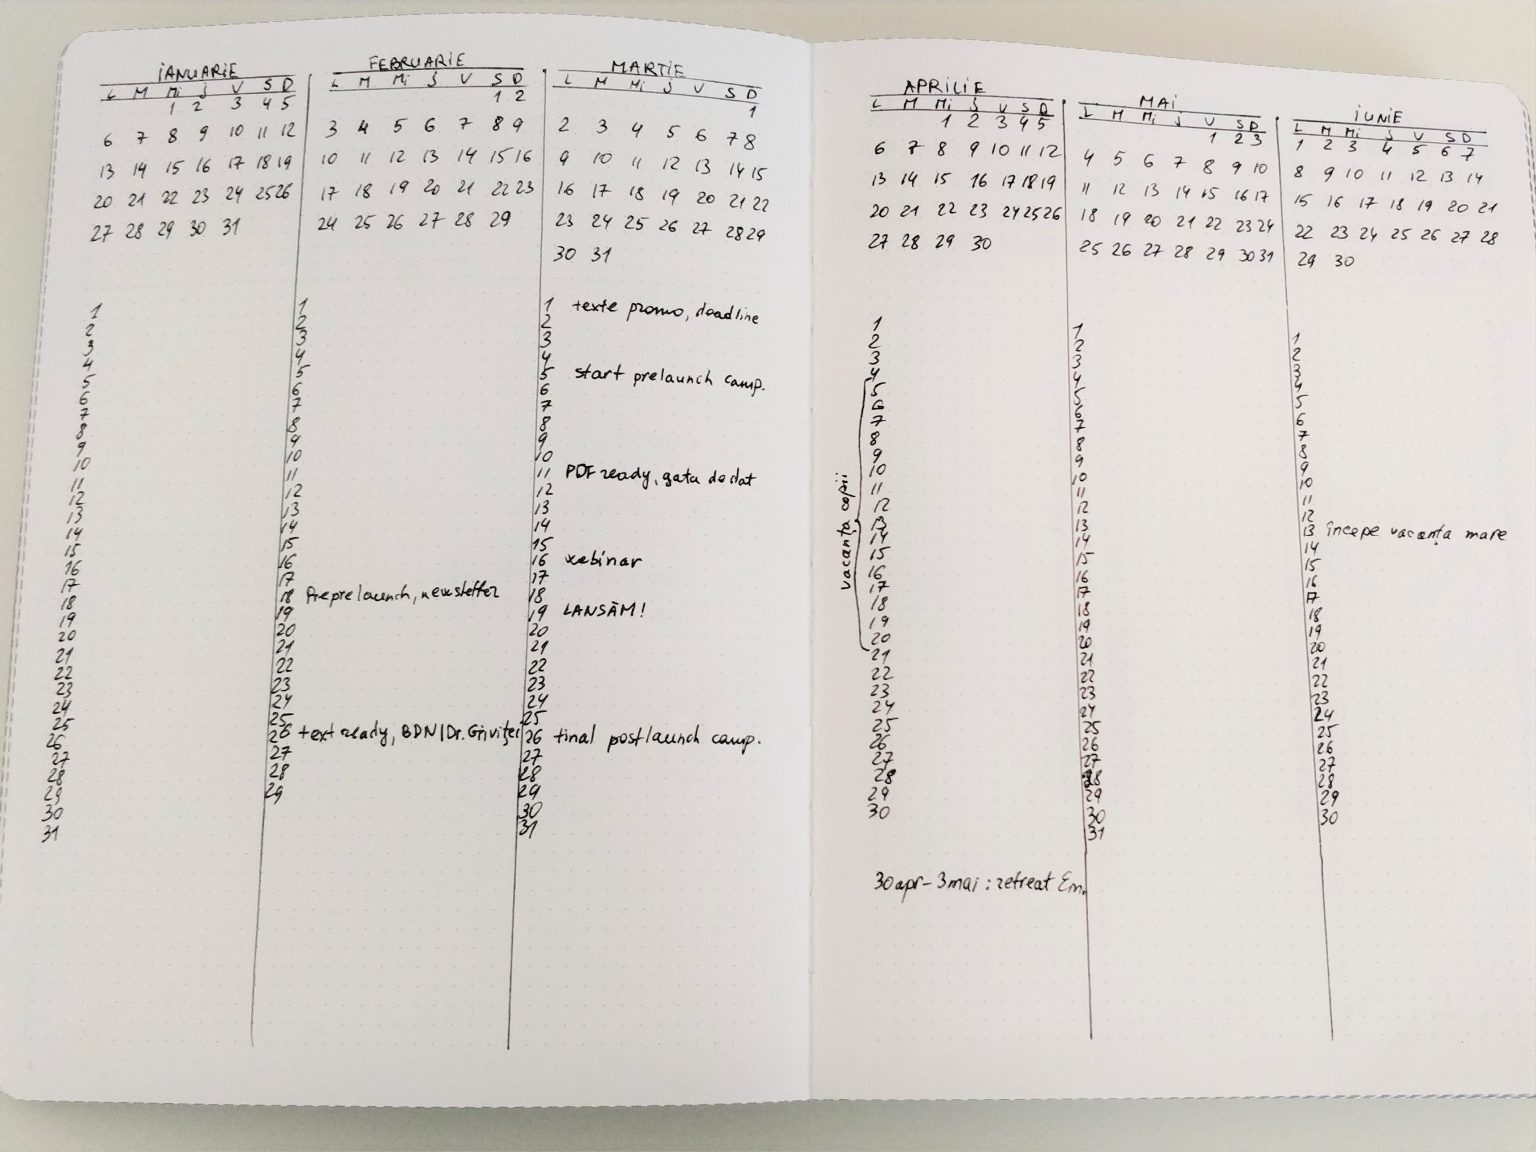 IANUARIE
L M Mi J V S D
1 2 3 4 5
6 7 8 9 10 11 12
13 14 15 16 17 18 19
20 21 22 23 24 25 26
27 28 29 30 31
1
2
3
4
5
6
7
8
9
10
11
12
13
14
15
16
17
18
19
20
21
22
23
24
25
26
27
28
29
30
31
FEBRUARIE
L M Mi J V S D
1 2
3 4 5 6 7 8 9
10 11 12 13 14 15 16
17 18 19 20 21 22 23
24 25 26 27 28 29
1
2
3
4
5
6
7
8
9
10
11
12
13
14
15
16
17
18 Preprelaunch, newsletter
19
20
21
22
23
24
25
26 text ready, BDN/Dr.
27
28
29
MARTIE
L M Mi J V S D
1
2 3 4 5 6 7 8
9 10 11 12 13 14 15
16 17 18 19 20 21 22
23 24 25 26 27 28 29
30 31
1 texte promo, deadline
2
3
4
5 start prelaunch camp.
6
7
8
9
10
11 PDF ready, gata de dat
12
13
14
15
16 webinar
17
18
19 LANSĂM!
20
21
22
23
24
25
26 final postlaunch camp.
27
28
29
30
31
APRILIE
L M Mi J V S D
1 2 3 4 5
6 7 8 9 10 11 12
13 14 15 16 17 18 19
20 21 22 23 24 25 26
27 28 29 30
1
2
3
4
5
6
7
8
9
10
11
12
13
14
15
16
17
18
19
20
21
22
23
24
25
26
27
28
29
30
vacanța copii
30 apr - 3 mai : retreat Em.
MAI
L M Mi J V S D
1 2 3
4 5 6 7 8 9 10
11 12 13 14 15 16 17
18 19 20 21 22 23 24
25 26 27 28 29 30 31
1
2
3
4
5
6
7
8
9
10
11
12
13
14
15
16
17
18
19
20
21
22
23
24
25
26
27
28
29
30
31
IUNIE
L M Mi J V S D
1 2 3 4 5 6 7
8 9 10 11 12 13 14
15 16 17 18 19 20 21
22 23 24 25 26 27 28
29 30
1
2
3
4
5
6
7
8
9
10
11
12
13 începe vacanța mare
14
15
16
17
18
19
20
21
22
23
24
25
26
27
28
29
30